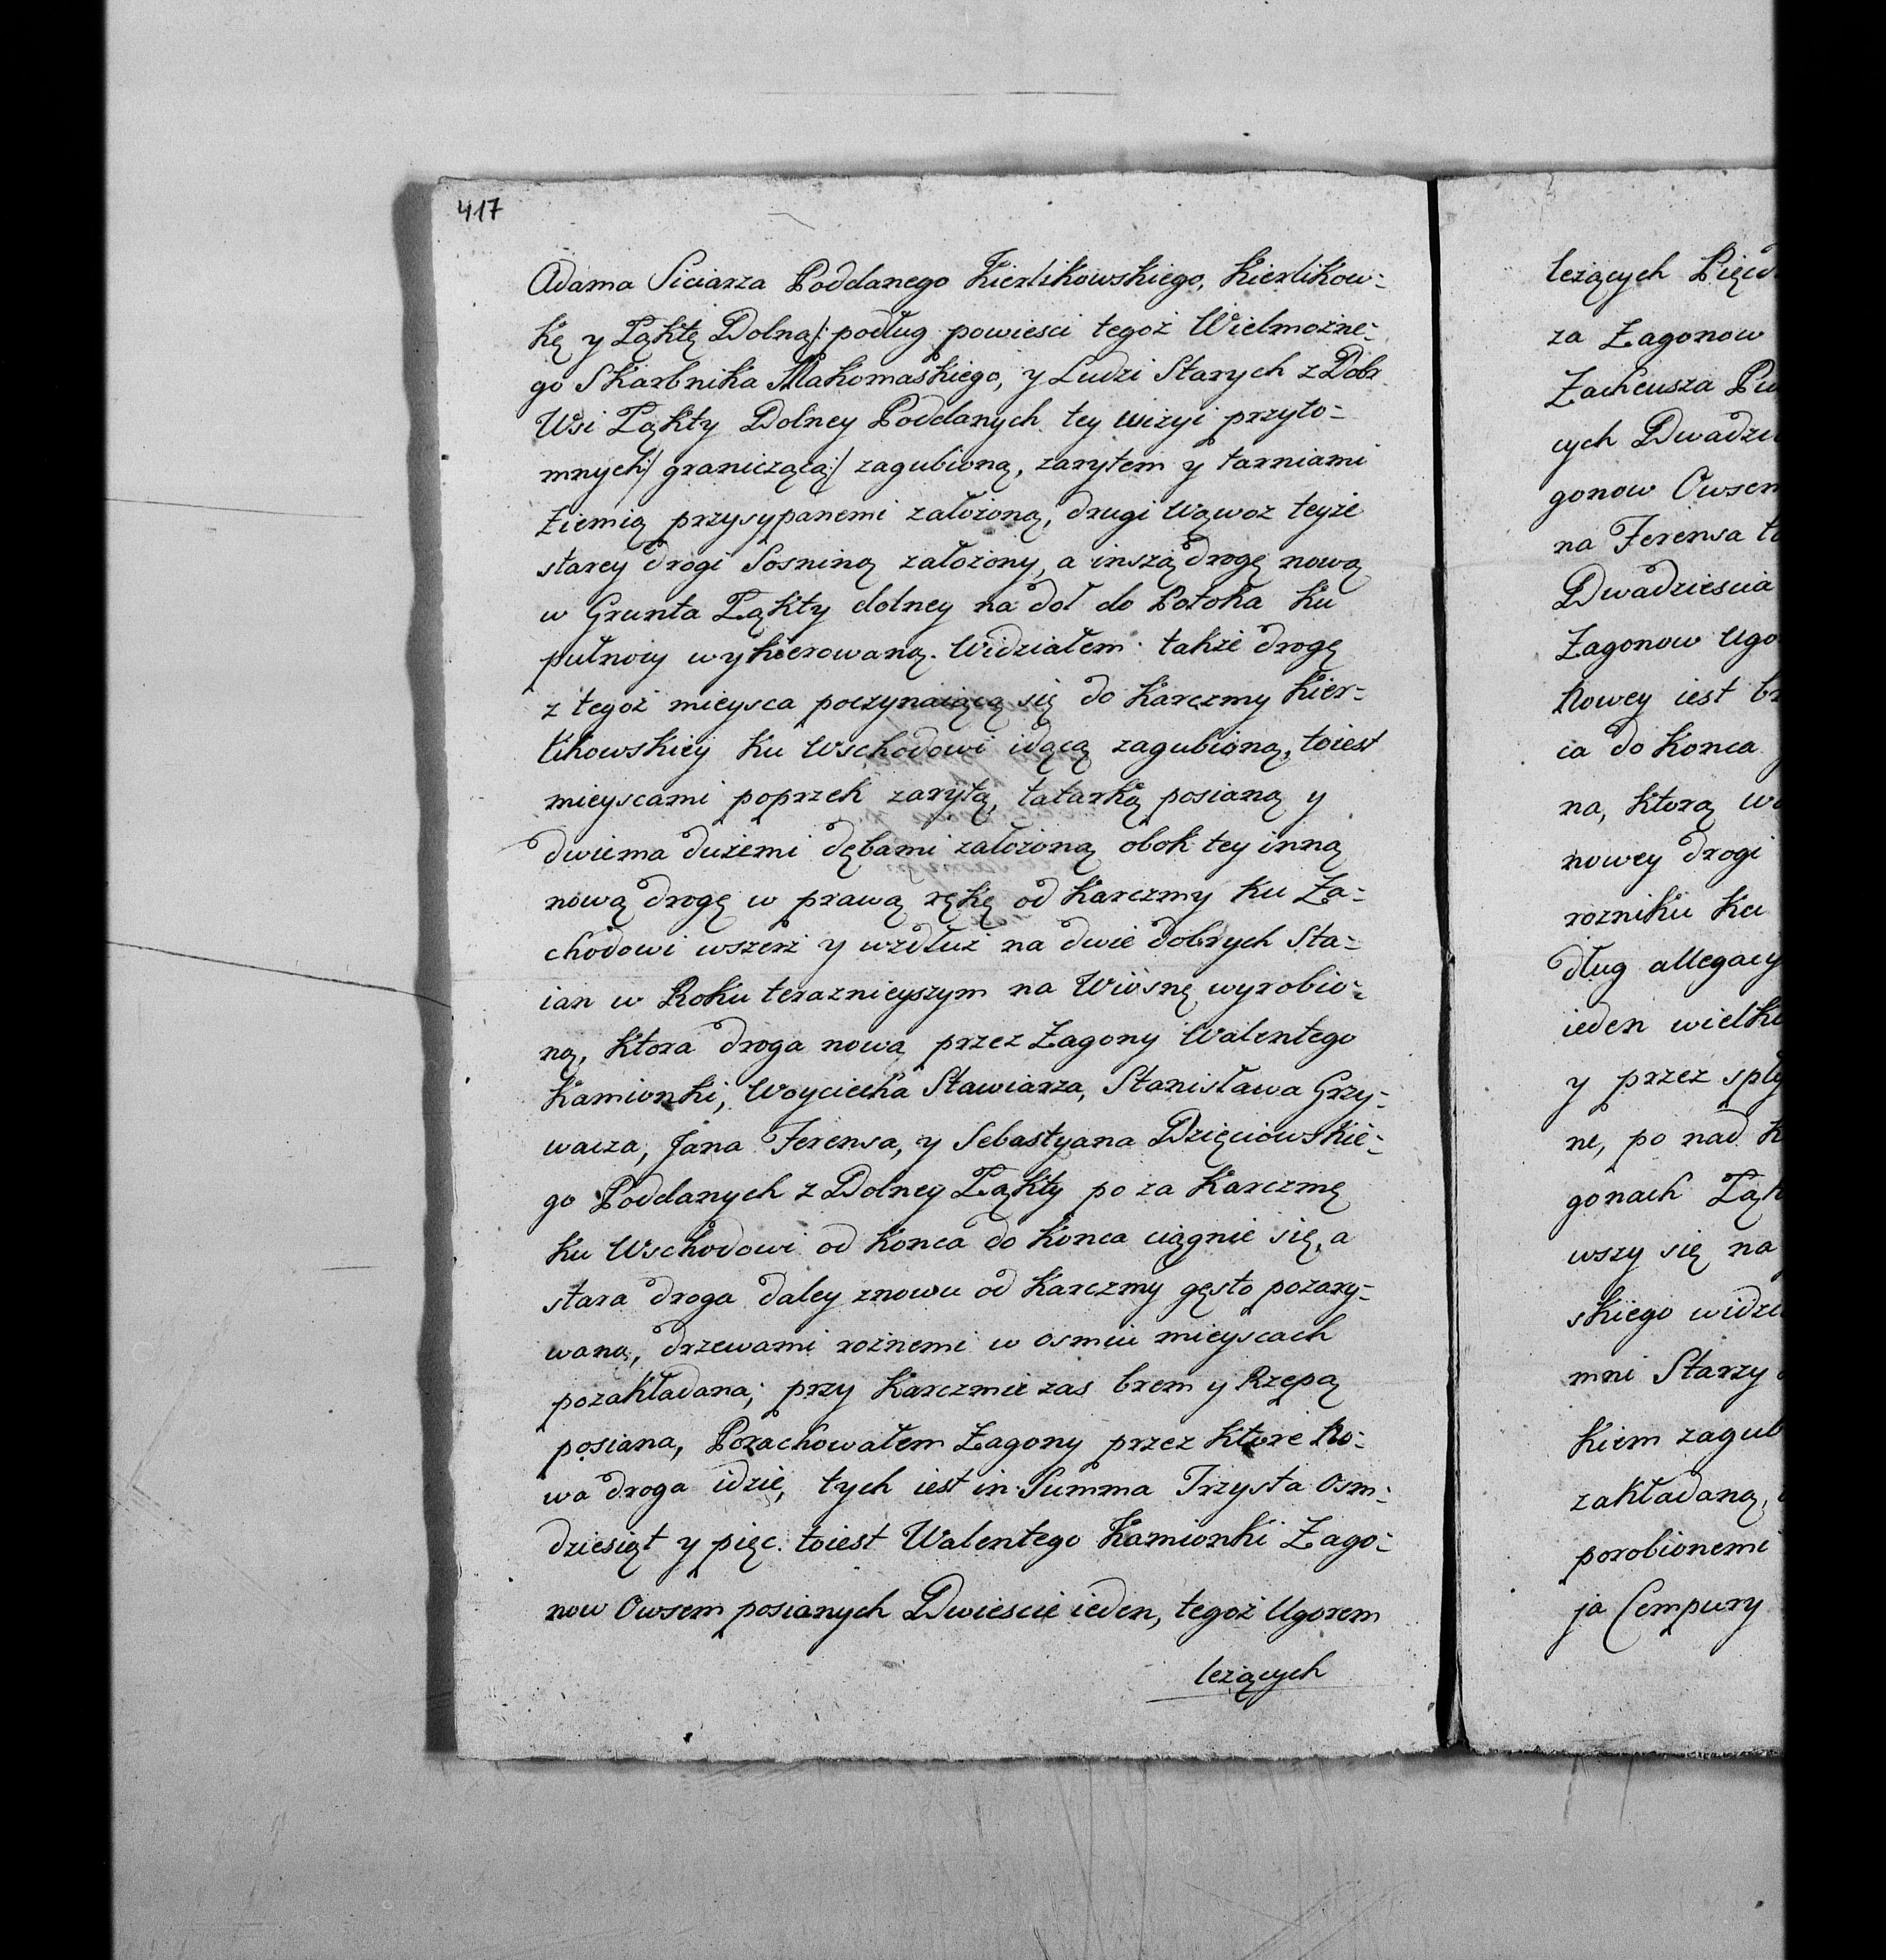 417
Adama Siciarza Poddanego Kierlikowskiego, Kierlikow-
kę y Łąktę Dolną/: podług powiesci tegoż Wielmożne-
go Skarbnika Makomaskiego, y Ludzi Starych z Dobr
Wsi Łąkty Dolney Poddanych tey wizyi przyto-
mnych:/ graniczącą:/ zagubioną, zarytem y tarniami
ziemią przysypanemi założoną, drugi Wąwoz teyże
starey drogi Sosniną założony, a inszą drogę nową
w Grunta Łąkty dolney na doł do Potoka ku
pułnocy wykierowaną. Widziałem także drogę
z tegoż mieysca poczynaiącą się do Karczmy Kier-
likowskiey ku Wschodowi idącą zagubioną, toiest
mieyscami poprzek zarytą, tatarką posianą y
dwiema dużemi dębami założoną obok tey inną
nową drogę w prawą rękę od Karczmy ku Za-
chodowi wszerz y wzdłuż na dwie dobrych Sta-
ian w Roku teraznieyszym na Wiosnę wyrobio-
ną, ktora droga nowa przez Zagony Walentego
Kamionki, Woyciecha Stawiarza, Stanisława Grzy-
wacza, Jana Ferensa, y Sebastyana Dzięciowskie-
go Poddanych z Dolney Łąkty po za Karczmę
ku Wschodowi od konca do konca ciągnie się, a
stara droga daley znowu od Karczmy gęsto pozary-
wana, drzewami rożnemi w osmiu mieyscach
pozakładana; przy Karczmie zas brem y Rzepą
posiana, Porachowałem Zagony przez ktore No-
wa droga idzie, tych iest in Summa Trzysta Osm-
dziesiąt y pięc. toiest Walentego Kamionki Zago-
now Owsem posianych Dwiescie ieden, tegoż Ugorem
leżących
leżących
za Zagonow
Zacheusza
cych
gonow
na Ferensa
Dwadziescia
Zagonow
Nowey iest
ca do konca
na, ktorą
nowey drogi
rozniku ku
dług
ieden
y przez
ne, po nad
gonach
wszy się na
skiego
mni Starzy
kiem
zakładaną,
porobionemi
ja Cempury